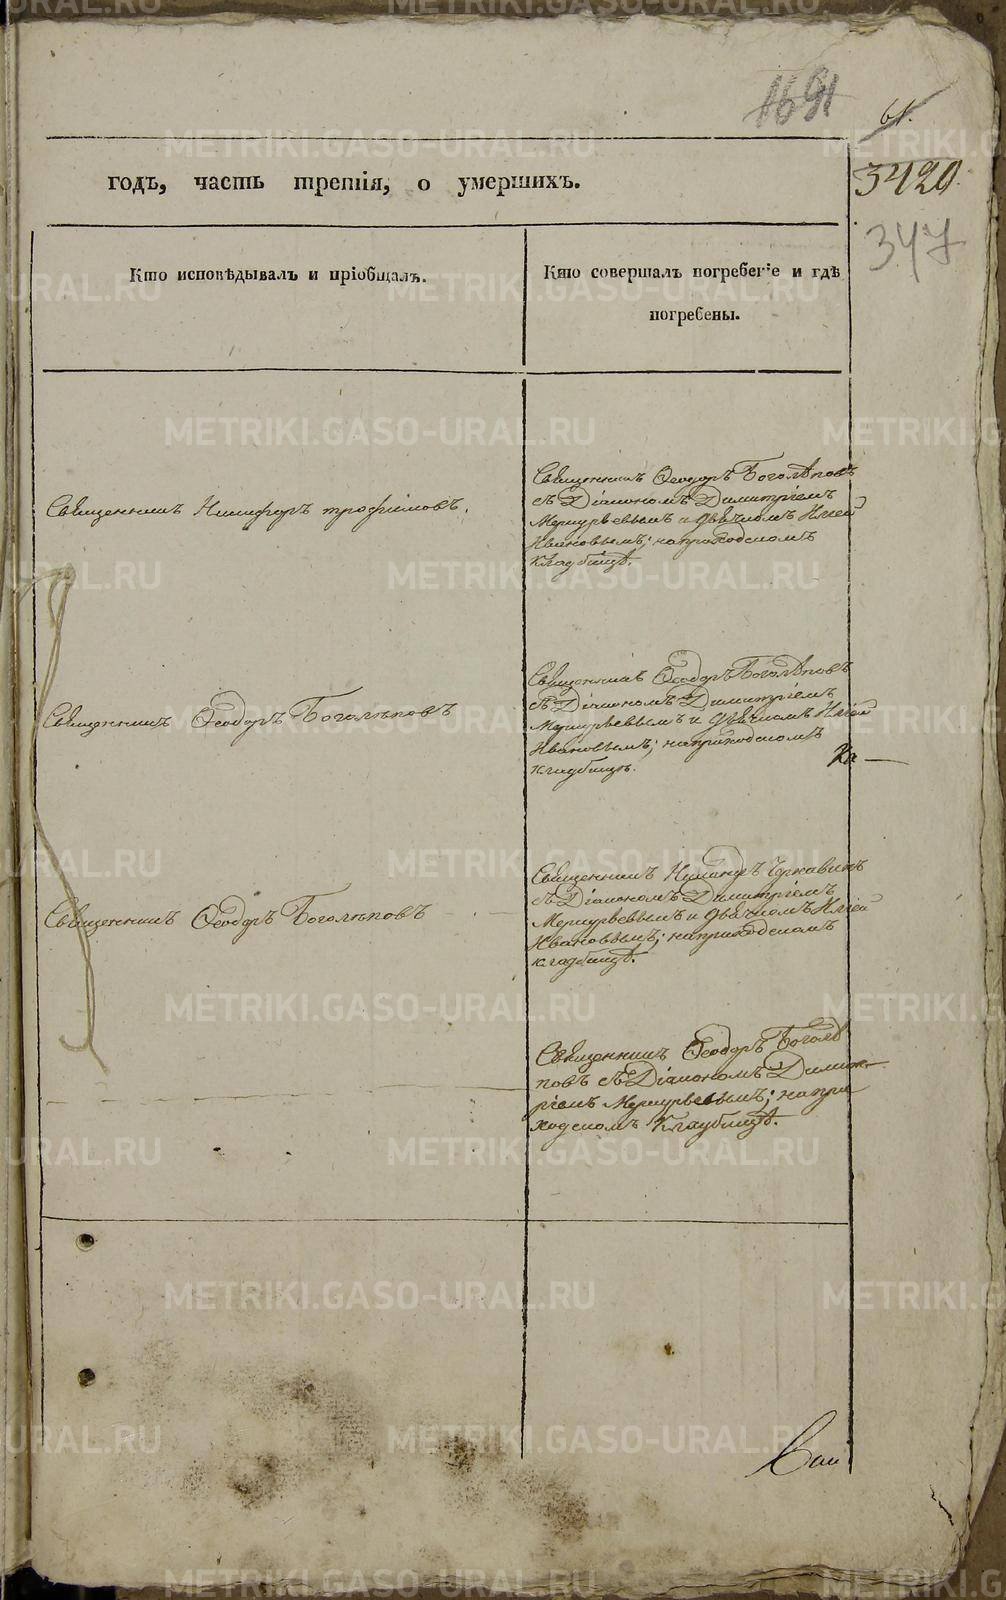 1691
61.
годъ, часть третія, о умершихъ.
3420.
347
Кто исповѣдывалъ и пріобщалъ.
Кто совершалъ погребеніе и гдѣ
погребены.
Священникъ Никифоръ трофимовъ.
Священникъ Ѳеодоръ Боголѣповъ
съ Діакономъ Димитріемъ
Меркурьевымъ и дьячкомъ Иліей
Ивановымъ; на приходскомъ
Кладбищѣ.
Священникъ Ѳеодоръ Боголѣповъ
Священникъ Ѳеодоръ Боголѣповъ
съ Діакономъ Димитріемъ
Меркурьевымъ и дьячкомъ Иліей
Ивановымъ; на приходскомъ
кладбищѣ.
Священникъ Ѳеодоръ Боголѣповъ
Священникъ Чернавинъ
съ Діакономъ Димитріемъ
Меркурьевымъ и дьячкомъ Иліей
Ивановымъ; на приходскомъ
кладбищѣ.
Священникъ Ѳеодоръ Боголѣ
повъ съ Діакономъ Димит-
ріемъ Меркурьевымъ; на при
ходскомъ Кладбищѣ.
METRIKI.GASO-URAL.RU